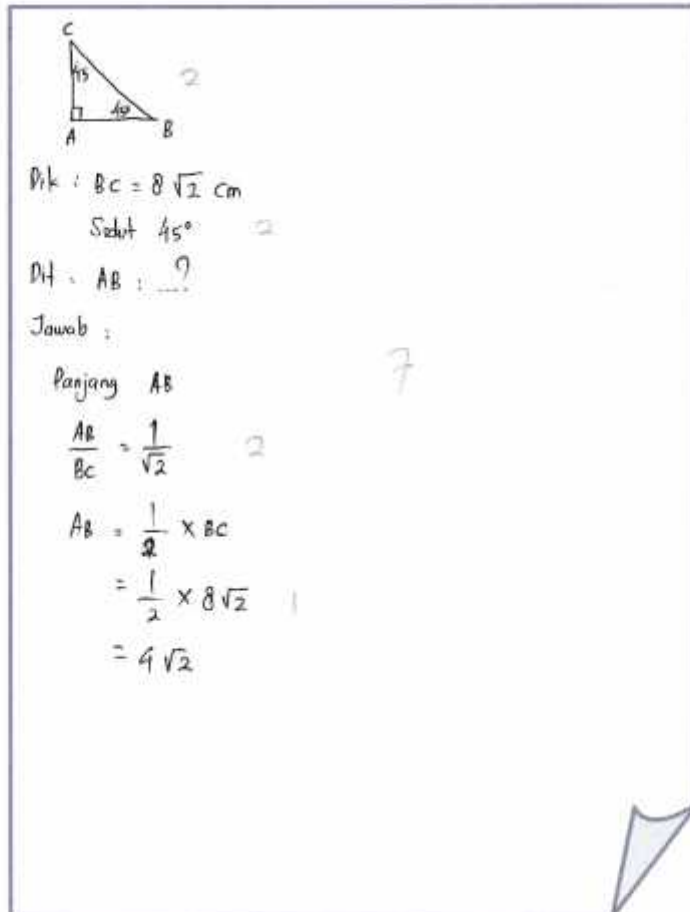 C
45
2
45°
A
B
Dik : BC = 8 √2 cm
Sudut 45° 2
Dit : AB : ....?
Jawab :
7
Panjang AB
AB/BC = 1/√2 2
AB = 1/2 × BC
= 1/2 × 8 √2 1
= 4 √2